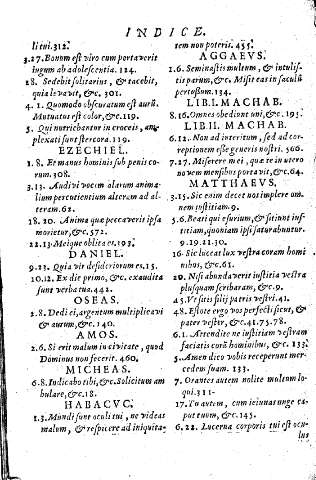 INDICE.
litui. 312.
3. 27. Bonum est viro cum portaverit
iugum ab adolescentia. 124.
28. Sedebit solitarius, & tacebit,
quia levavit, &c. 301.
4. 1. Quomodo obscuratum est aurũ.
Mutatus est color, &c. 119.
5. Qui nutriebantur in croceis, am-
plexati sunt stercora. 119.
EZECHIEL.
1. 8. Et manus hominis sub penis eo-
rum. 308.
3. 13. Audivi vocem alarum anima-
lium percutientium alteram ad al-
teram. 62.
18. 20. Anima quæ peccaverit ipsa
morietur, &c. 572.
22. 13. Meique oblita es. 193.
DANIEL.
9. 23. Quia vir desideriorum es. 15.
10. 12. Ex die primo, &c. exaudita
sunt verba tua. 442.
OSEAS.
2. 8. Dedi ei, argentum multiplicavi
& aurum, &c. 140.
AMOS.
2. 6. Si erit malum in civitate, quod
Dominus non fecerit. 460.
MICHEAS.
6. 8. Indicabo tibi, &c. Solicitum am
bulare, &c. 18.
HABACVC.
1. 3. Mundi sunt oculi tui, ne videas
malum, & respicere ad iniquita-
tem non poteris. 455.
AGGAEVS.
1. 6. Seminastis multum, & intulis-
tis parum, &c. Misit ea in sacculũ
pertusum. 134.
LIB. I. MACHAB.
8. 16. Omnes obediunt uni, &c. 195.
LIB. II. MACHAB.
6. 12. Non ad interitum, sed ad cor-
reptionem esse generis nostri. 560.
7. 27. Miserere mei, quæ te in utero
novem mensibus portavit, &c. 64.
MATTHAEVS.
3. 15. Sic enim decet nos implere om-
nem iustitiam. 9.
5. 6. Beati qui esurium, & sitiunt ius-
titiam, quoniam ipsi saturabuntur.
9. 19. 21. 30.
16. Sic luceat lux vestra coram homi
nibus, &c. 61.
20. Nisi abundaverit iustitia vestra
plusquam scribarum, &c. 9.
45. Ut sitis filij patris vestri. 41.
48. Estote ergo vos perfecti sicut, &
pater vester, &c. 41. 75. 78.
6. 1. Attendite ne iustitiam vestram
faciatis corã hominibus, &c. 133.
5. Amen dico vobis receperunt mer-
cedem suam. 133.
7. Orantes autem nolite multum lo-
qui. 311.
17. Tu autem, cum ieiunas unge ca-
put tuum, &c. 145.
6. 22. Lucerna corporis tui est ocu-
lus